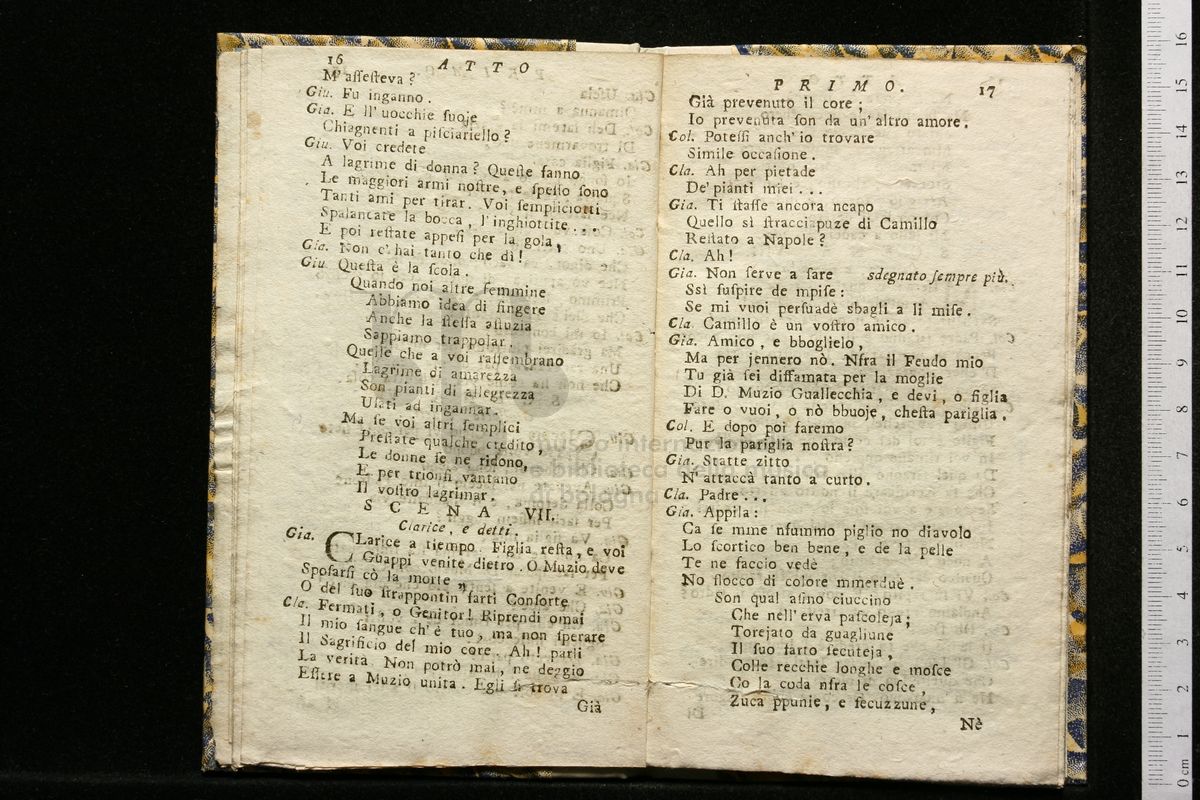 16 ATTO
M'assesteva ?
Giu. Fu inganno .
Gia. E ll' uocchie suoje
Chiagnenti a pisciariello ?
Giu. Voi credete
A lagrime di donna ? Queste fanno
Le maggiori armi nostre, e spesso sono
Tanti ami per tirar. Voi sempliciotti
Spalancate la bocca , l'inghiottite ...
E poi restate appesi per la gola,
Gia. Non c'hai tanto che dì !
Giu. Questa è la scola .
Quando noi altre femmine
Abbiamo idea di fingere
Anche la stessa astuzia
Sappiamo trappolar .
Quelle che a voi rassembrano
Lagrime di amarezza
Son pianti di allegrezza
Usati ad ingannar .
Ma se voi altri semplici
Prestate qualche credito ,
Le donne se ne ridono,
E per trionfi vantano
Il vostro lagrimar .
SCENA VII.
Clarice, e detti .
Gia. CLarice a tiempo . Figlia resta , e voi
Guappi venite dietro . O Muzio deve
Sposarsi cò la morte ,
O del suo strappontin farti Consorte
Cla. Fermati , o Genitor ! Riprendi omai
Il mio sangue ch'è tuo , ma non sperare
Il Sagrificio del mio core . Ah ! parli
La verità . Non potrò mai , ne deggio
Essere a Muzio unita . Egli si trova
Già
PRIMO. 17
Già prevenuto il core ;
Io prevenuta son da un' altro amore .
Col. Potessi anch' io trovare
Simile occasione .
Cla. Ah per pietade
De' pianti miei ...
Gia. Ti stasse ancora ncapo
Quello sì stracci puze di Camillo
Restato a Napole ?
Cla. Ah !
Gia. Non serve a fare sdegnato sempre più.
Ssì suspire de mpise :
Se mi vuoi persuadè sbagli a li mise .
Cla. Camillo è un vostro amico .
Gia. Amico , e bboglielo ,
Ma per jennero nò . Nfra il Feudo mio
Tu già sei diffamata per la moglie
Di D. Muzio Guallecchia , e devi , o figlia
Fare o vuoi , o nò bbuoje, chesta pariglia .
Col. E dopo poi faremo
Pur la pariglia nostra ?
Gia. Statte zitto
N' attaccà tanto a curto .
Cla. Padre ...
Gia. Appila :
Ca se mme nfummo piglio no diavolo
Lo scortico ben bene , e de la pelle
Te ne faccio vedè
No stocco di colore mmerduè .
Son qual asino ciuccino
Che nell' erva pascoleja ;
Torejato da guagliune
Il suo sarto secuteja ,
Colle recchie longhe e mosce
Co la coda nfra le cosce ,
Zuca ppunie , e secuzzune ,
Nè
museo internazionale
e biblioteca della musica
di bologna
16
15
14
13
12
11
10
9
8
7
6
5
4
3
2
1
0 cm